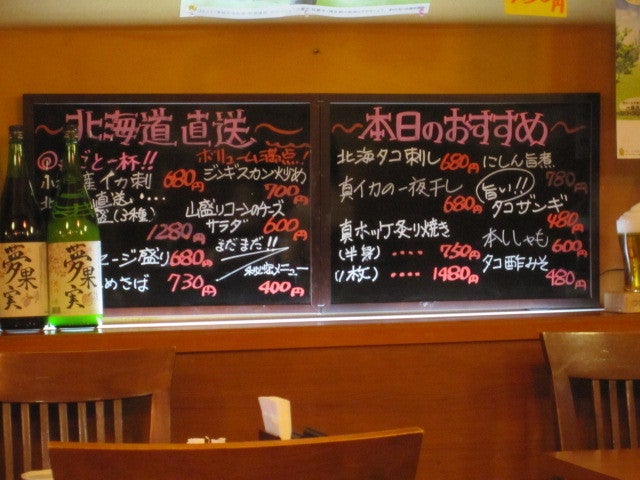 ～北海道直送～
と一杯!!
イカ刺 680円
直送・・・
(3種)
1280円
セージ盛り 680円
めさば 730円
ボリューム満点!
ジンギスカン炒め
700円
山盛りコーンのチーズ
サラダ 600円
まだまだ!!
メニュー
400円
～本日のおすすめ～
北海タコ刺し 680円
真イカの一夜干し
680円
真ホッケ炙り焼き
(半身)・・・・ 750円
(1枚)・・・・ 1480円
にしん旨煮
780円
旨い!!
タコザンギ
480円
本ししゃも
600円
タコ酢みそ
480円
夢果実
夢果実